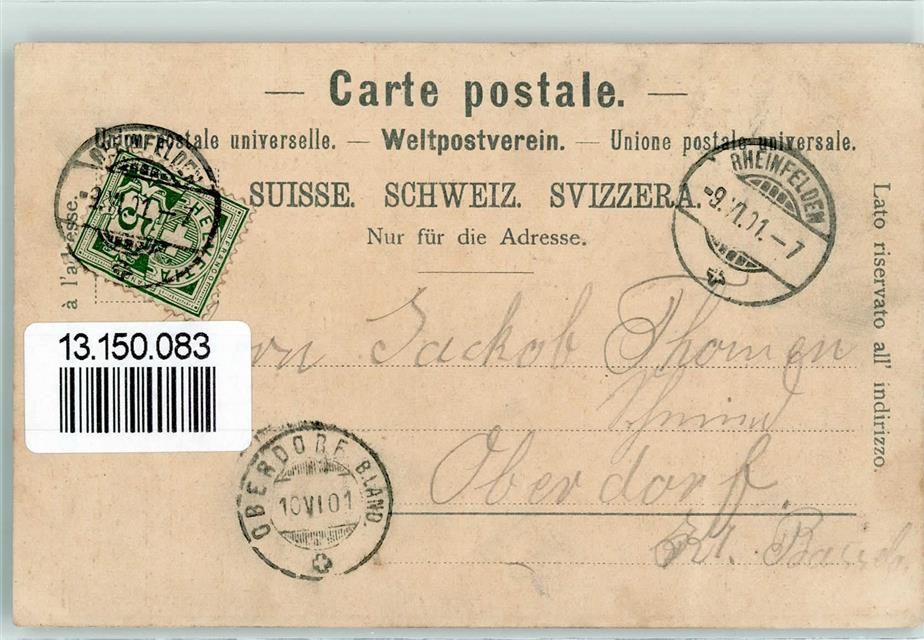 — Carte postale. —
Union postale universelle. — Weltpostverein. — Unione postale universale.
SUISSE. SCHWEIZ. SVIZZERA.
Nur für die Adresse.
à l'adresse.
Lato riservato all' indirizzo.
RHEINFELDEN
-9.VI.01.-7
HELVETIA
5
RHEINFELDEN
-9.VI.01.-7
13.150.083
Jackob Thommen
Oberdorf.
Kt.
OBERDORF BLAND
10 VI 01